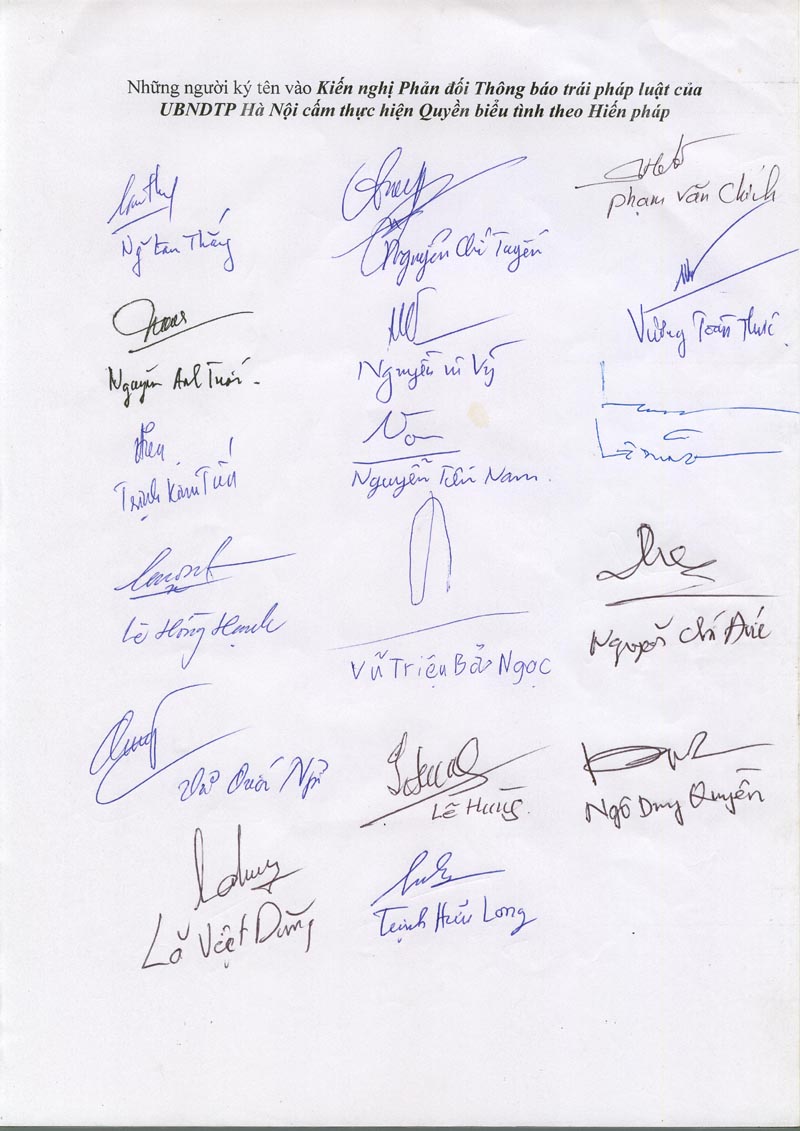 Những người ký tên vào Kiến nghị Phản đối Thông báo trái pháp luật của
UBNDTP Hà Nội cấm thực hiện Quyền biểu tình theo Hiến pháp
Phạm Văn Chích
Thắng
Nguyễn Chí Tuyến
Vương Toàn Thức
Nguyễn Anh Tuấn
Nguyễn Vi Vỹ
Trịnh Kim Tiến
Nguyễn Tiến Nam
Lê Hồng Hạnh
Vũ Triệu Bảo Ngọc
Nguyễn Chí Đức
Vũ Quốc Ngữ
Lê Hùng
Ngô Duy Quyền
Lã Việt Dũng
Trịnh Hữu Long